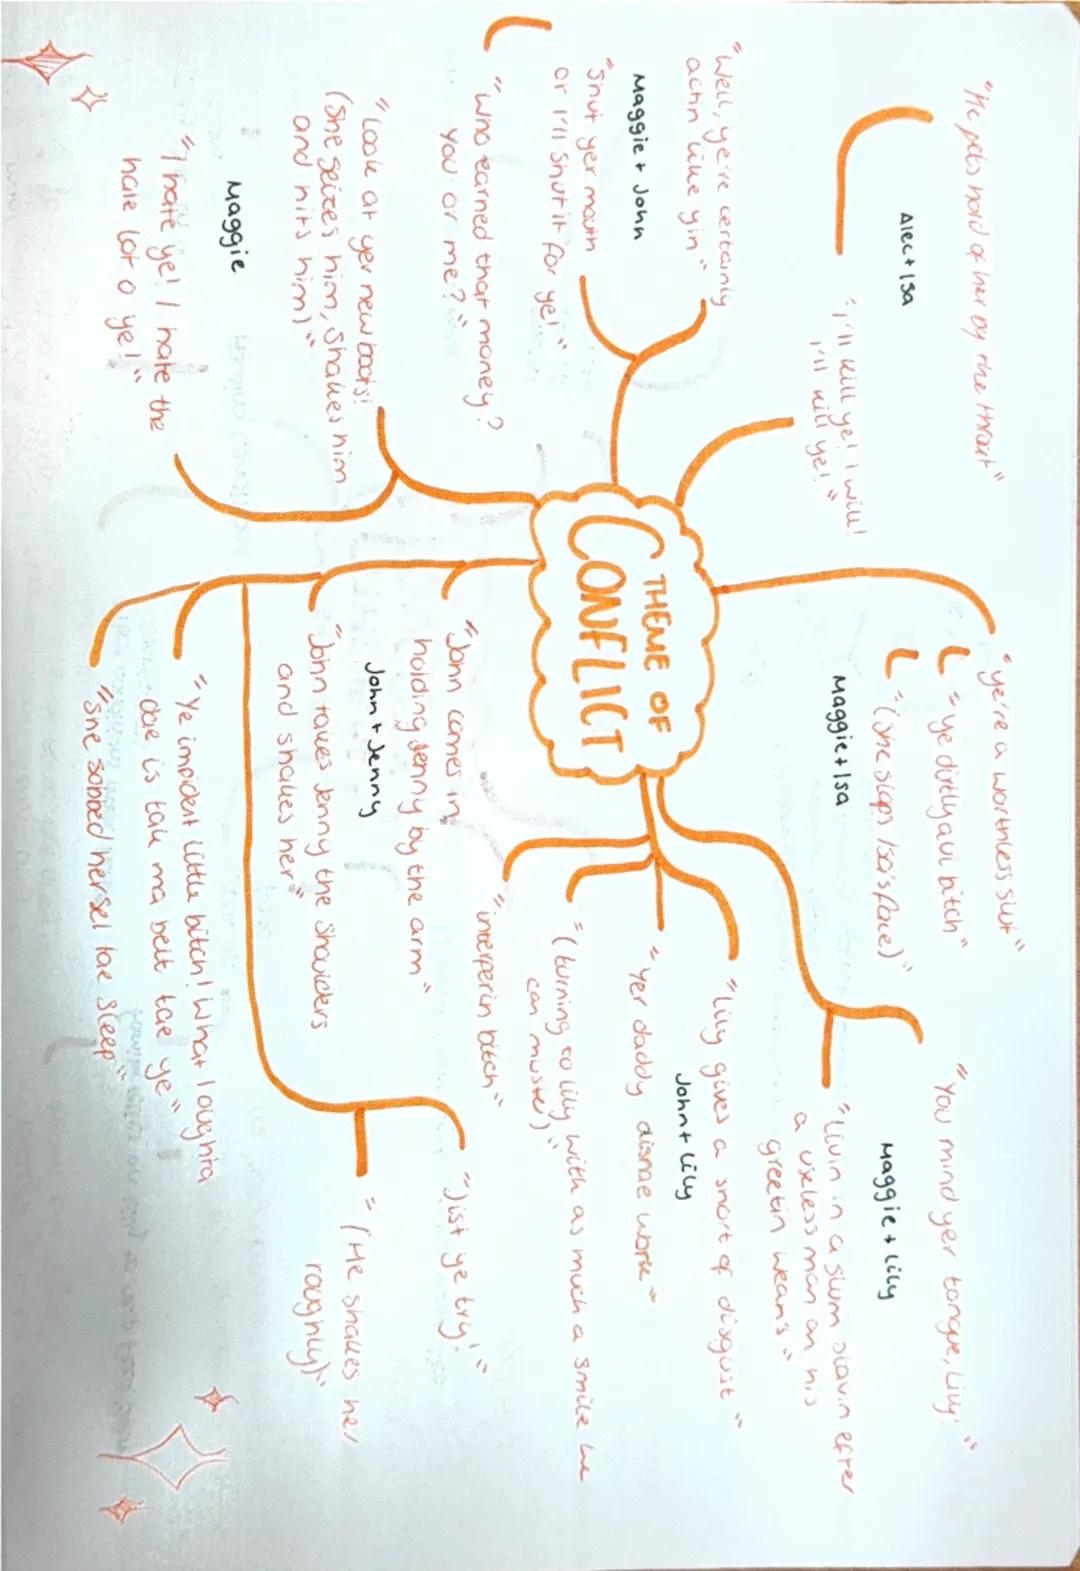 "He gets hold of her by the throat"
Alec + Isa
"I'll kill ye! I will!
I'll kill ye!"
"Well, ye're certainly
actin like yin"
Maggie + John
"Shut yer mouth
or I'll shut it for ye!"
"Who earned that money?
You or me?"
"Look at yer new boots!
(She seizes him, shakes him
and hits him)"
Maggie
"I hate ye! I hate the
hale lot o ye!"
THEME OF
CONFLICT
"ye're a worthless slut"
"ye dirty aul bitch"
"(she slaps Isa's face)"
Maggie + Isa
"You mind yer tongue, Lily!"
Maggie + Lily
"Livin in a slum slavin efter
a useless man an his
greetin weans"
"Lily gives a snort of disgust"
John + Lily
"yer daddy disnae work"
"(turning to Lily with as much a smile he
can muster)"
"interferin bitch"
"John comes in,
holding Jenny by the arm"
John + Jenny
"John takes Jenny the shoulders
and shakes her"
"Ye impident little bitch! What I oughta
dae is tak ma belt tae ye"
"she sobbed hersel tae sleep"
"Jist ye try!"
"(He shakes her
roughly)"